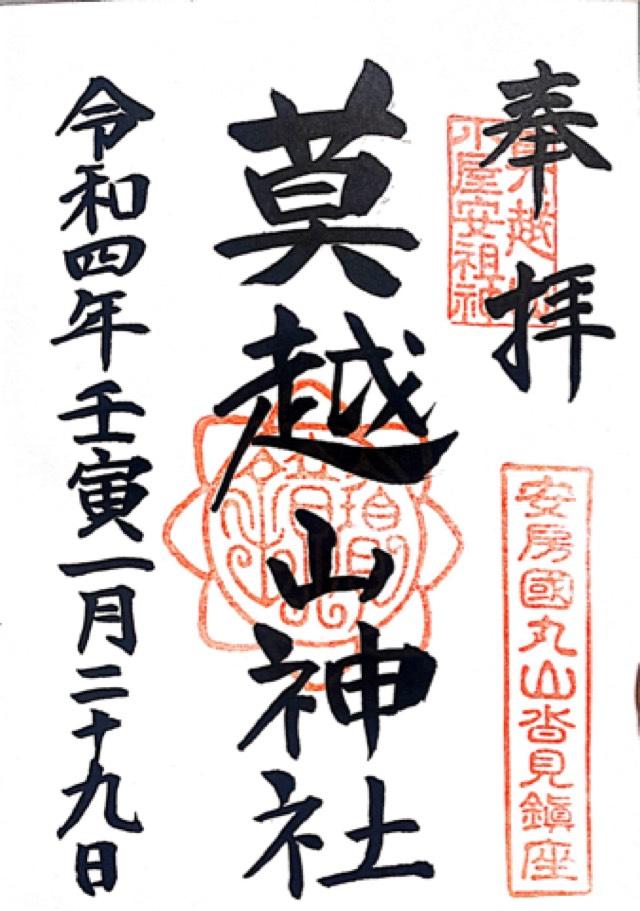 奉拝
莫越山
小屋安祖神
安房國丸山沓見鎭座
莫越山神社
令和四年壬寅一月二十九日